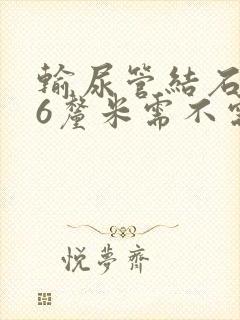 輸尿管結石
6釐米需不需
悅夢齊